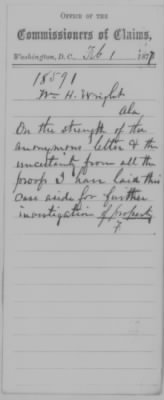 OFFICE OF THE
Commissioners of Claims,
Washington, D.C., Feb 1 1877
18591
Wm H. Wright
Ala
On the strength of the
anonymous letter & the
uncertainty from all the
proof I have laid this
case aside for further
investigation of property